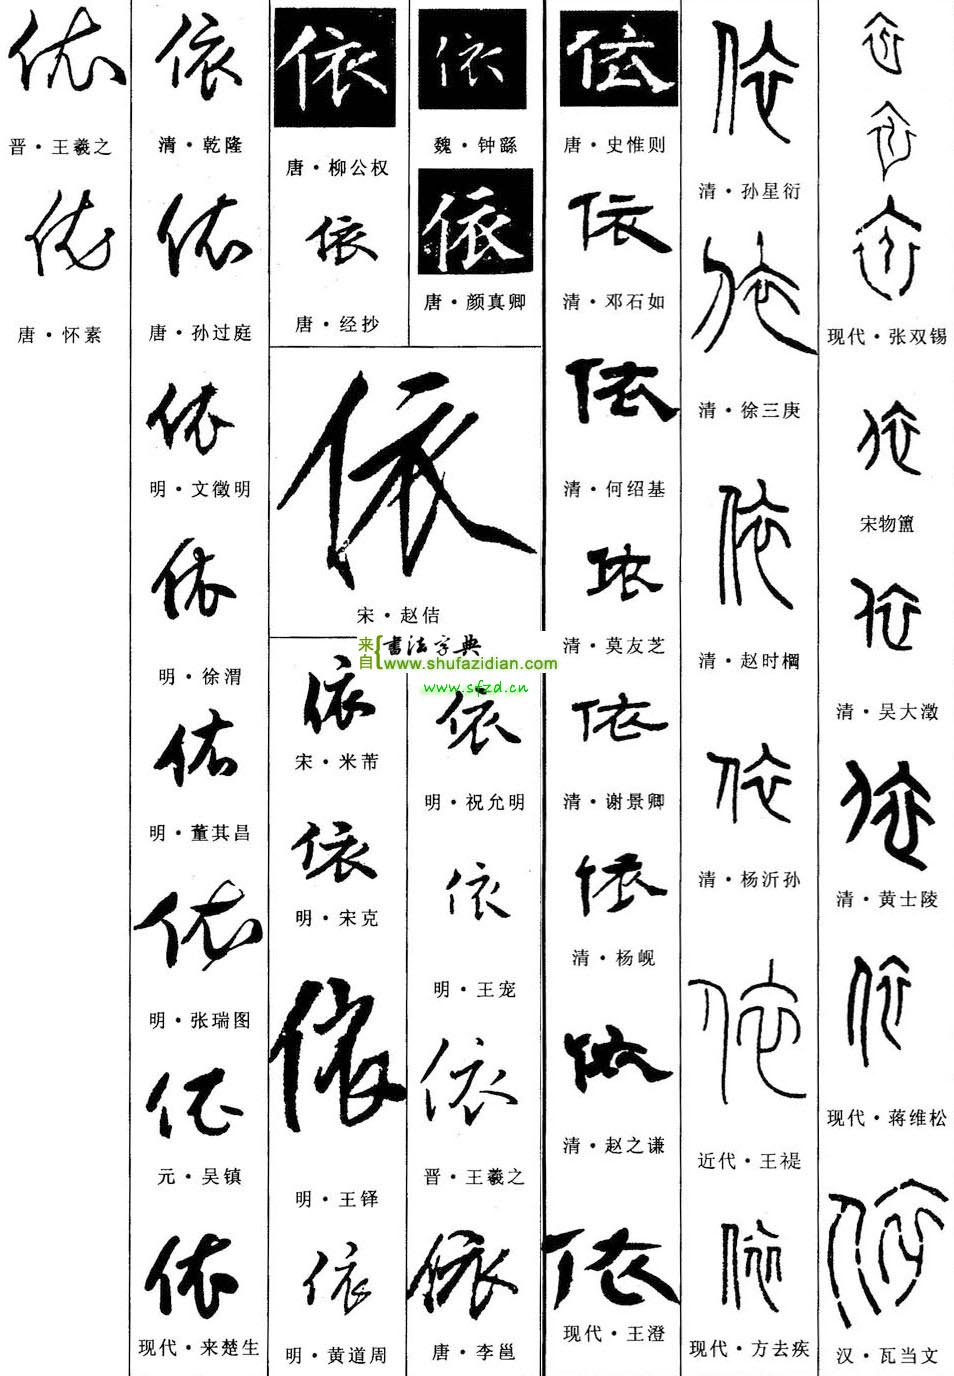 依
晋·王羲之
依
唐·怀素
依
清·乾隆
依
唐·孙过庭
依
明·文徵明
依
明·徐渭
依
明·董其昌
依
明·张瑞图
依
元·吴镇
依
现代·来楚生
依
唐·柳公权
依
唐·经抄
依
宋·赵佶
来自{书法字典
www.shufazidian.com
www.sfzd.cn
依
宋·米芾
依
明·宋克
依
明·王铎
依
明·黄道周
依
魏·钟繇
依
唐·颜真卿
依
明·祝允明
依
明·王宠
依
晋·王羲之
依
唐·李邕
依
唐·史惟则
依
清·邓石如
依
清·何绍基
依
清·莫友芝
依
清·谢景卿
依
清·杨岘
依
清·赵之谦
依
现代·王澄
依
清·孙星衍
依
清·徐三庚
依
清·赵时棡
依
清·杨沂孙
依
近代·王禔
依
现代·方去疾
依
依
依
现代·张双锡
依
宋物簠
依
清·吴大澂
依
清·黄士陵
依
现代·蒋维松
依
汉·瓦当文